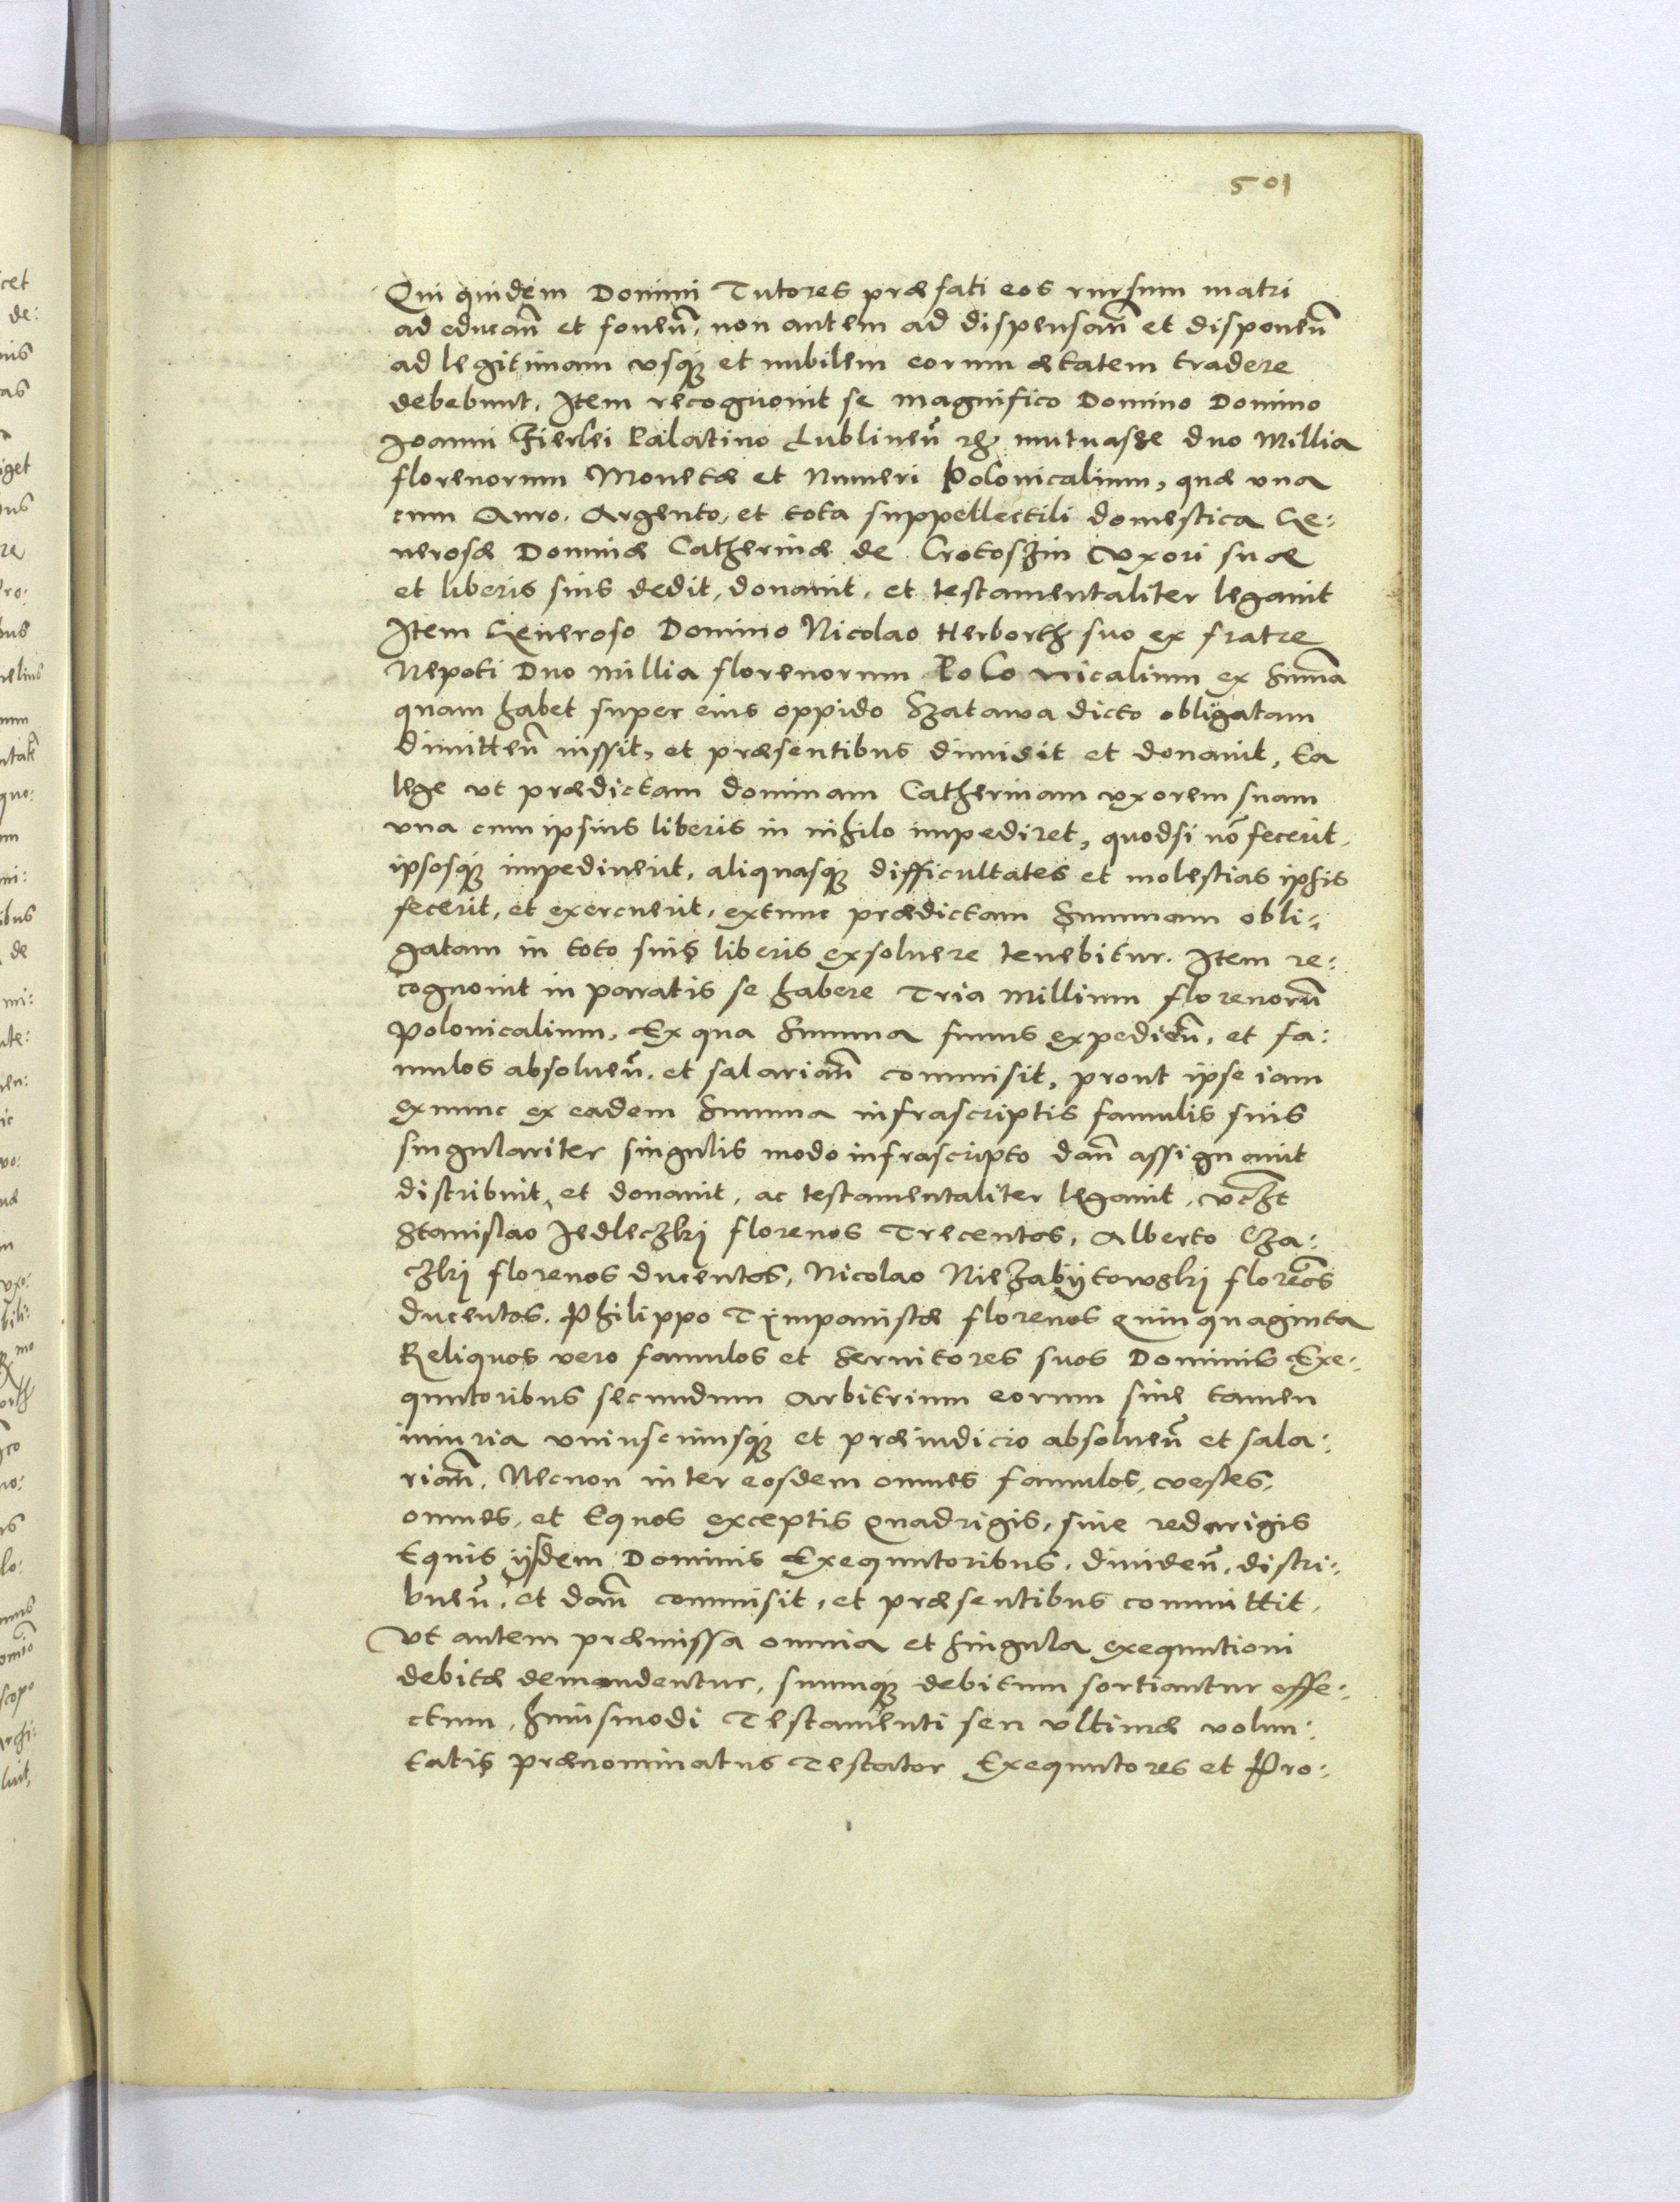 501
Qui quidem Domini Tutores præfati eos rursum matri
ad educan̄ et fouen̄, non autem ad dispensan̄ et disponen̄
ad legitimam vsq̃ et nubilem eorum ætatem tradere
debebunt. Item recognouit se magnifico Domino Domino
Ioanni Firlei Palatino Lublinen̄ &c mutuasse duo Millia
florenorum Monetæ et Numeri Polonicalium, quæ una
cum Auro, Argento, et tota suppellectili domestica Ge:
nerosæ Dominæ Catherinæ de Crotoszin vxori suæ
et liberis suis dedit, donauit, et testamentaliter legauit
Item Generoso Domino Nicolao Herborth suo ex fratre
Nepoti Duo millia florenorum Polonicalium ex Sum̄a
quam habet super eius oppido Szatawa dicto obligatam
dimitten̄ iussit, et præsentibus dimisit et donauit, ea
lege ut prædictam dominam Catherinam uxorem suam
una cum ipsius liberis in nihilo impediret, quodsi nō fecerit
ipsosq̃ impediuerit, aliquasq̃ difficultates et molestias ipsis
fecerit, et exercuerit, extunc prædictam Summam obli:
gatam in toto suis liberis exsoluere tenebitur. Item re:
cognouit in paratis se habere Tria Millium florenorū
Polonicalium, Ex qua Summa funus expedien̄, et fa:
mulos absoluen̄, et salarian̄ commisit, prout ipse iam
exnunc ex eadem Summa infrascriptis famulis suis
singulariter singulis modo infrascripto dan̄ assignauit
distribuit, et donauit, ac testamentaliter legauit, vcz̄t
Stanislao Jedleczkj florenos Trecentos, Alberto Cza:
czkj florenos ducentos, Nicolao Niezabÿtowskj floren̄os
ducentos. Philippo Tÿmpanistæ florenos Quinquaginta
Reliquos vero famulos et Seruitores suos Dominis Exe:
quutoribus secundum Arbitrium eorum sine tamen
iniuria uniuscuiusq̃ et præiudicio absoluen̄ et sala:
rian̄. Necnon inter eosdem omnes famulos, vestes,
omnes, et Equos exceptis Quadrigis, siue redarigis
Equis ijsdem Dominis Exequutoribus, diuiden̄, distri:
buen̄, et dan̄ commisit, et præsentibus committit.
Vt autem præmissa omnia et singula exequutioni
debitæ demandentur, suumq̃ debitum sortiantur effe:
ctum, huiusmodi Testamenti seu ultimæ volun:
tatis prænominatus Testator Exequutores et Pro: